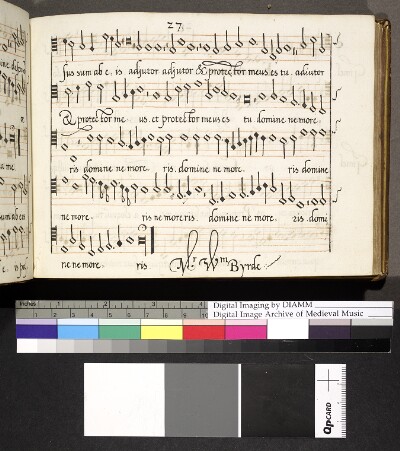 27.
sus sum ab e. is adjutor adjutor & protector meus es tu. adiutor
& protector me us. et protector meus es tu domine ne more.
ris domine ne more. ris. domine ne more. ris domine
ne more. ris ne more ris. domine ne more. ris domi
ne ne more. ris Mr. Wm Byrde
Inches 1 2 3 4
Digital Imaging by DIAMM
Digital Image Archive of Medieval Music
QPCARD